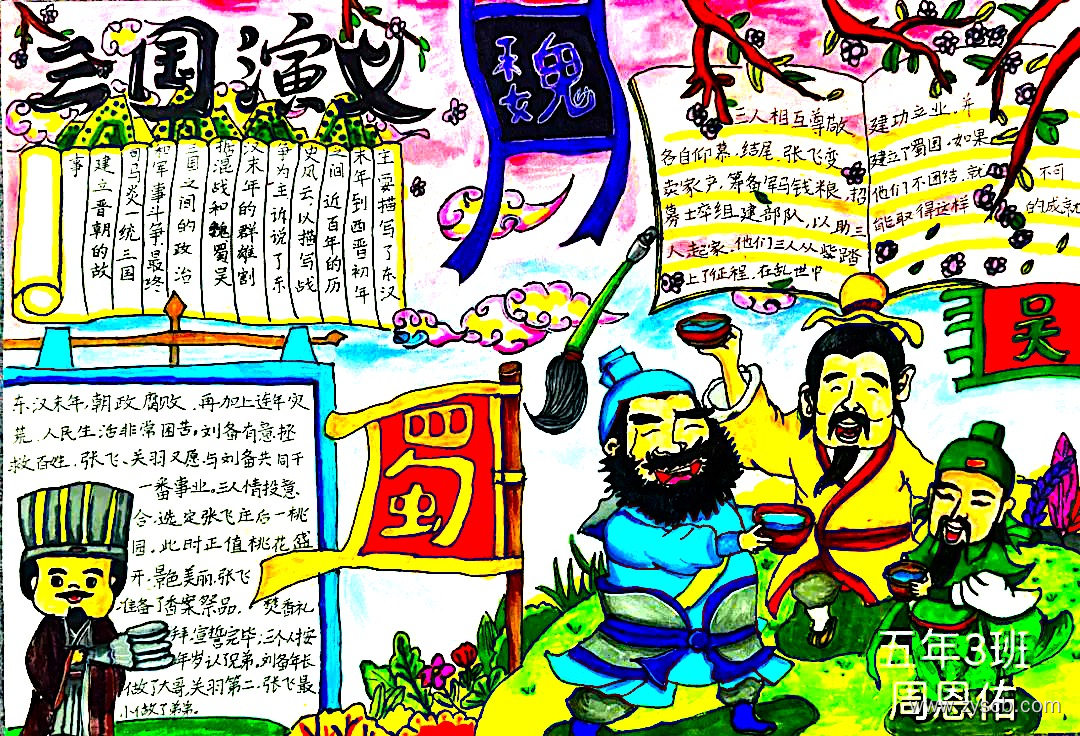 三国演义
主要描写了东汉
末年到西晋初年
之间近百年的历
史风云,以描写战
争为主,诉说了东
汉末年的群雄割
据混战和魏蜀吴
三国之间的政治
和军事斗争,最终
司马炎一统三国
建立晋朝的故
事
魏
三人相互尊敬
各自仰慕,结尾,张飞变
卖家产,筹备军马钱粮,招
募士卒组建部队,以助三
人起家,他们三人从此踏
上了征程,在乱世中
建功立业,并
建立了蜀国,如果
他们不团结,就不可
能取得这样的成就
吴
东汉末年,朝政腐败,再加上连年灾
荒,人民生活非常困苦,刘备有意拯
救百姓,张飞、关羽又愿与刘备共同干
一番事业。三人情投意
合,选定张飞庄后一桃
园,此时正值桃花盛
开,景色美丽,张飞
准备了香案祭品,焚香礼
拜,宣誓完毕,三个人按
年岁认了兄弟,刘备年长
做了大哥,关羽第二,张飞最
小做了弟弟。
蜀
五年3班
周恩佑